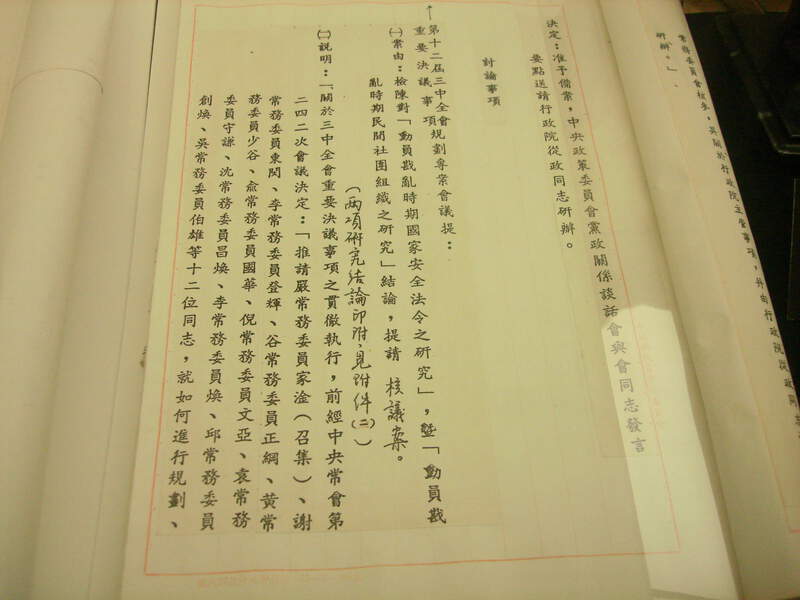 決定：准予備案，中央政策委員會黨政關係談話會與會同志發言
要點送請行政院從政同志研辦。
討論事項
第十二屆三中全會規劃專案會議提：
重要決議事項
㈠案由：檢陳對「動員戡亂時期國家安全法令之研究」，暨「動員戡
亂時期民間社團組織之研究」結論，提請 核議案。
（兩項研究結論印附，見附件㈡）
㈡說明：「關於三中全會重要決議事項之貫徹執行，前經中央常會第
二四二次會議決定：「推請嚴常務委員家淦（召集）、謝
常務委員東閔、李常務委員登輝、谷常務委員正綱、黃常
務委員少谷、俞常務委員國華、倪常務委員文亞、袁常務
委員守謙、沈常務委員昌煥、李常務委員煥、邱常務委員
創煥、吳常務委員伯雄等十二位同志，就如何進行規劃、